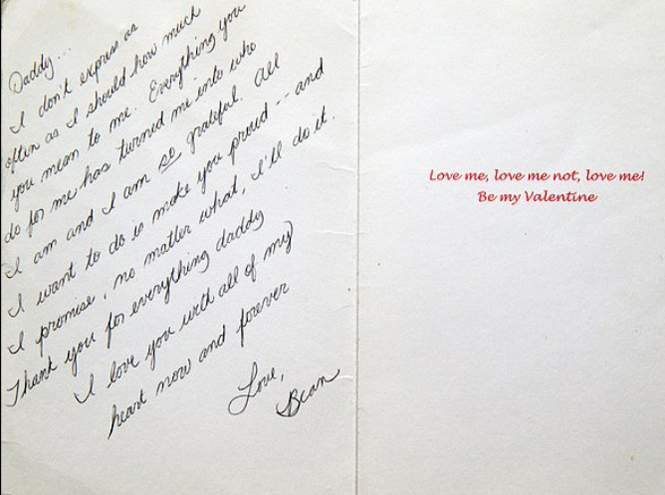 Daddy...
I don't express as
often as I should how much
you mean to me. Everything you
do for me has turned me into who
I am and I am so grateful. All
I want to do is make you proud -- and
I promise, no matter what, I'll do it.
Thank you for everything daddy
I love you with all of my
heart now and forever
Love,
Bean
Love me, love me not, love me!
Be my Valentine